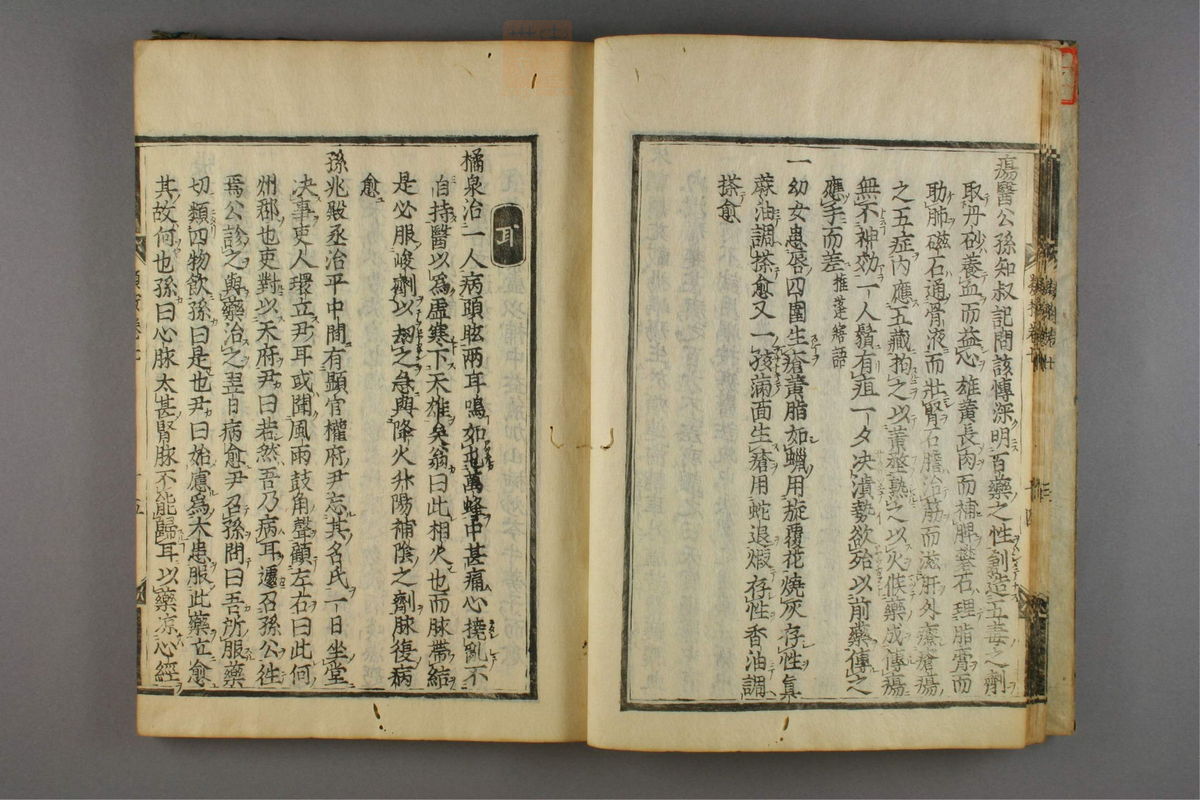 瘍醫公孫知叔記問該愽深明百藥之性創造五毒之劑
取丹砂養血而益心雄黄長肉而補脾礬石理脂膏而
助肺磁石通骨液而壮腎石膽治筋而滋肝外療瘡瘍
之五症内應五藏拘之以黄堥熟之以火候藥成傳瘍
無不神効一人鬚有疽一夕决潰勢欲殆以前藥傳之
應手而差推蓬寤語
一幼女患唇四圍生瘡黄脂如蠟用旋覆花燒灰存性眞
蔴油調搽愈又一孩滿面生瘡用蛇退煅存性香油調
搽愈
耳
橘泉治一人病頭眩兩耳鳴如屯萬蜂中甚痛心撓亂不
自持醫以爲虚寒下天雄矣翁曰此相火也而脉帶結
是必服峻劑以刼之急與降火升陽補陰之劑脉復病
愈
孫兆殿丞治平中間有顯官權府尹忘其名氏一日坐堂
决事吏人環立尹耳或聞風雨鼓角聲顧左右曰此何
州郡也吏對以天府尹曰若然吾乃病耳遽召孫公徃
焉公診之與藥治之翌日病愈尹召孫問曰吾所服藥
切類四物飲孫曰是也尹曰始慮爲大患服此藥立愈
其故何也孫曰心脉太甚腎脉不能歸耳以藥凉心經